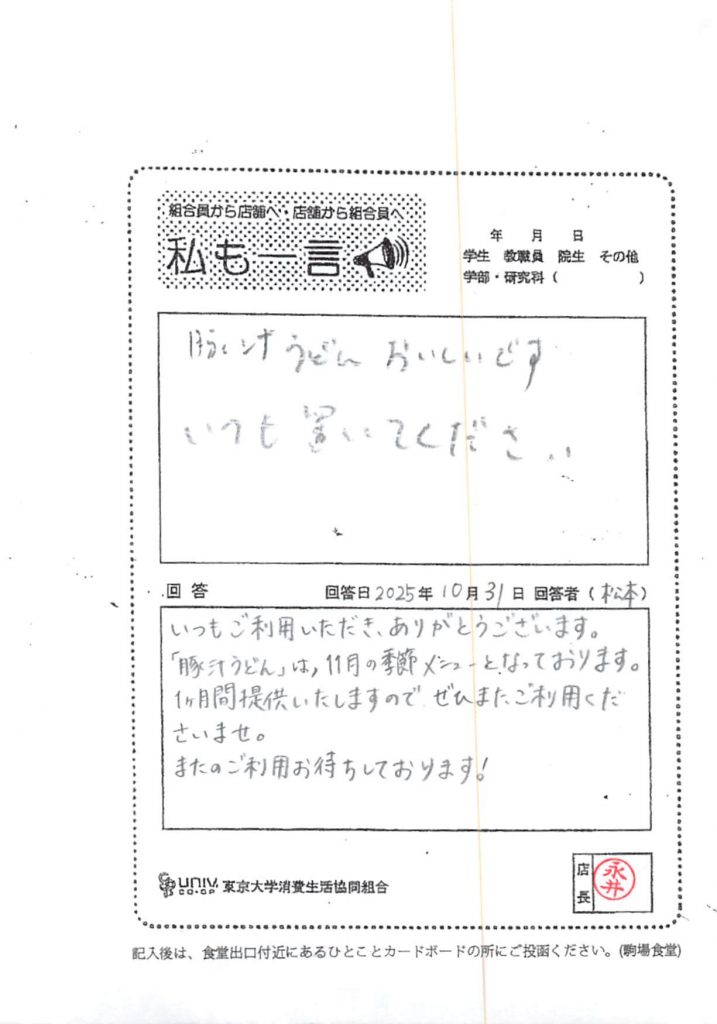 組合員から店舗へ・店舗から組合員へ
私も一言
年 月 日
学生 教職員 院生 その他
学部・研究科（ ）
豚汁うどん おいしいです
いつも置いてください
回答 回答日 2025年 10月 31日 回答者（松本）
いつもご利用いただき、ありがとうございます。
「豚汁うどん」は、11月の季節メニューとなっております。
1ヶ月間提供いたしますので ぜひまたご利用くだ
さいませ。
またのご利用お待ちしております！
UNIV CO-OP 東京大学消費生活協同組合
店長 永井
記入後は、食堂出口付近にあるひとことカードボードの所にご投函ください。(駒場食堂)